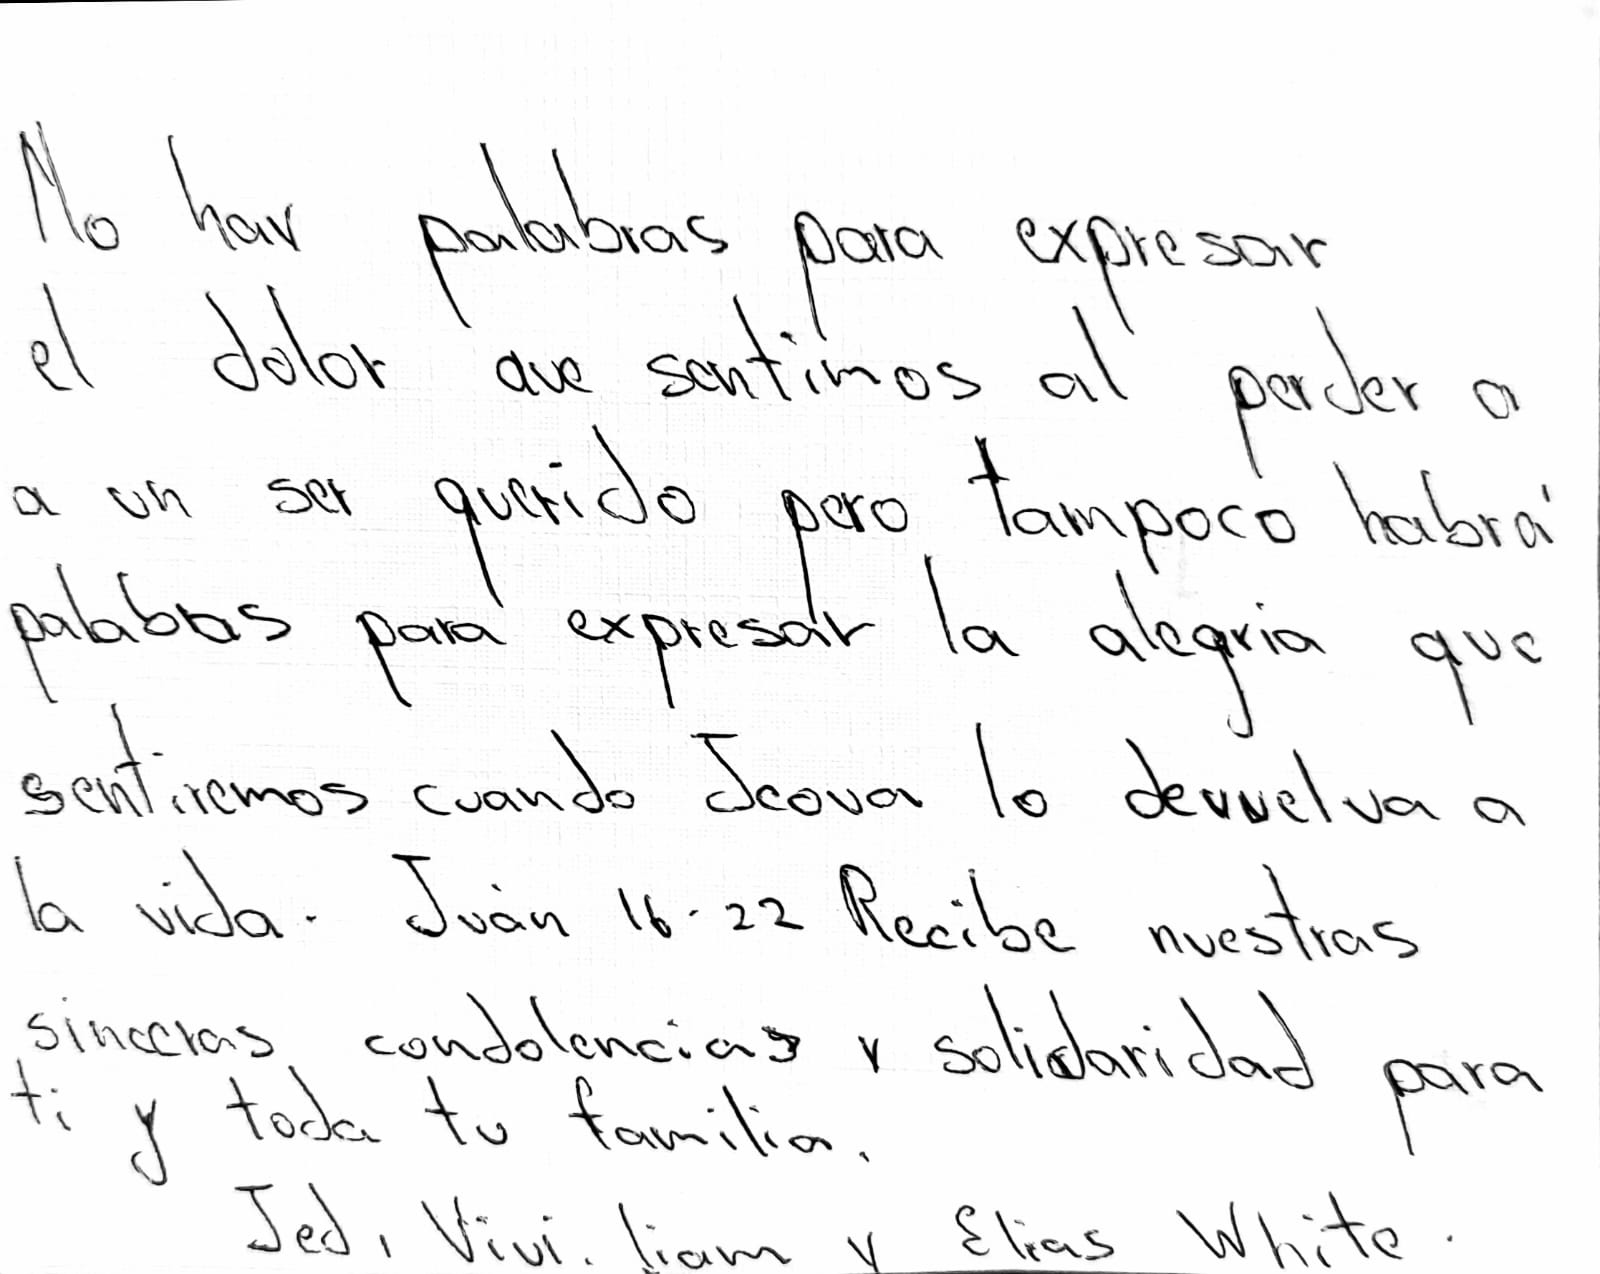 No hay palabras para expresar
el dolor que sentimos al perder a
a un ser querido pero tampoco habrá
palabras para expresar la alegria que
sentiremos cuando Jeova lo devuelva a
la vida. Juán 16-22 Recibe nuestras
sinceras condolencias y solidaridad para
ti y toda tu familia.
Jed, Vivi. liam y Elias White.